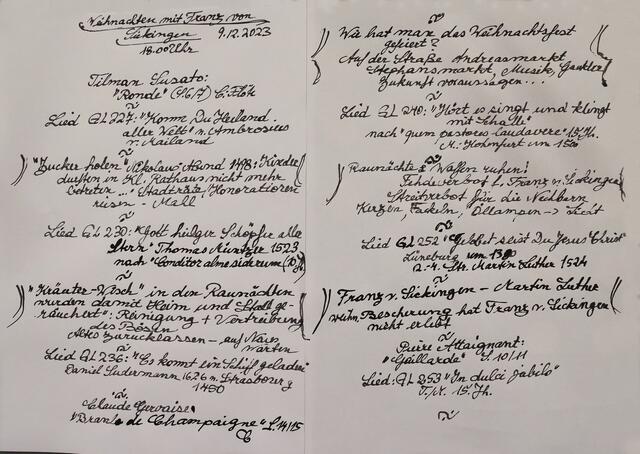 Weihnachten mit Franz von
Sickingen 9.12.2023
18.00 Uhr
Tilman Susato:
"Ronde" (S.6/7) C.Flöte
Lied GL 227: "Komm Du Heiland
aller Welt" n. Ambrosius
v. Mailand
"Zucker holen" Nikolaus Abend 1498: Kinder
durften in Hl. Rathaus nicht mehr
Stadträte, Honoratioren
Mall
Lied GL 230: "Gott heilger Schöpfer aller
Stern" Thomas Müntzer 1523
nach "Conditor alme siderum" (10.Jh)
"Kräuter-Wisch" in den Raunächten
wurden damit Heim und Stall ge-
räuchert: Reinigung + Vertreibung
des Bösen
Altes zurücklassen - auf Neues
warten
Lied GL 236: "Es kommt ein Schiff geladen"
Daniel Sudermann 1626 n. Strassburg
1450
Claude Gervaise
"Branle de Champagne" S.14/15
Wie hat man das Weihnachtsfest
gefeiert?
Auf der Straße Andreasmarkt
Stephansmarkt, Musik, Gaukler
Zukunft voraussagen...
Lied GL 240: "Hört es singt und klingt
mit Schalle"
nach "quem pastores laudavere" 15.Jh.
M.: Hohenfurt um 1500
Raunächte: Waffen ruhen!
Fehdeverbot f. Franz v. Sickingen
Streitverbot für die Nachbarn
Kerzen, Fackeln, Öllampen -> Licht
Lied GL 252 "Gelobet seist Du Jesus Christ"
Lüneburg um 1380
2.-7. Str. Martin Luther 1524
Franz v. Sickingen - Martin Luther
Weihn. Bescherung hat Franz v. Sickingen
nicht erlebt
Pierre Attaignant:
"Gaillarde" S.10/11
Lied: GL 253 "In dulci jubilo"
T./M. 15.Jh.